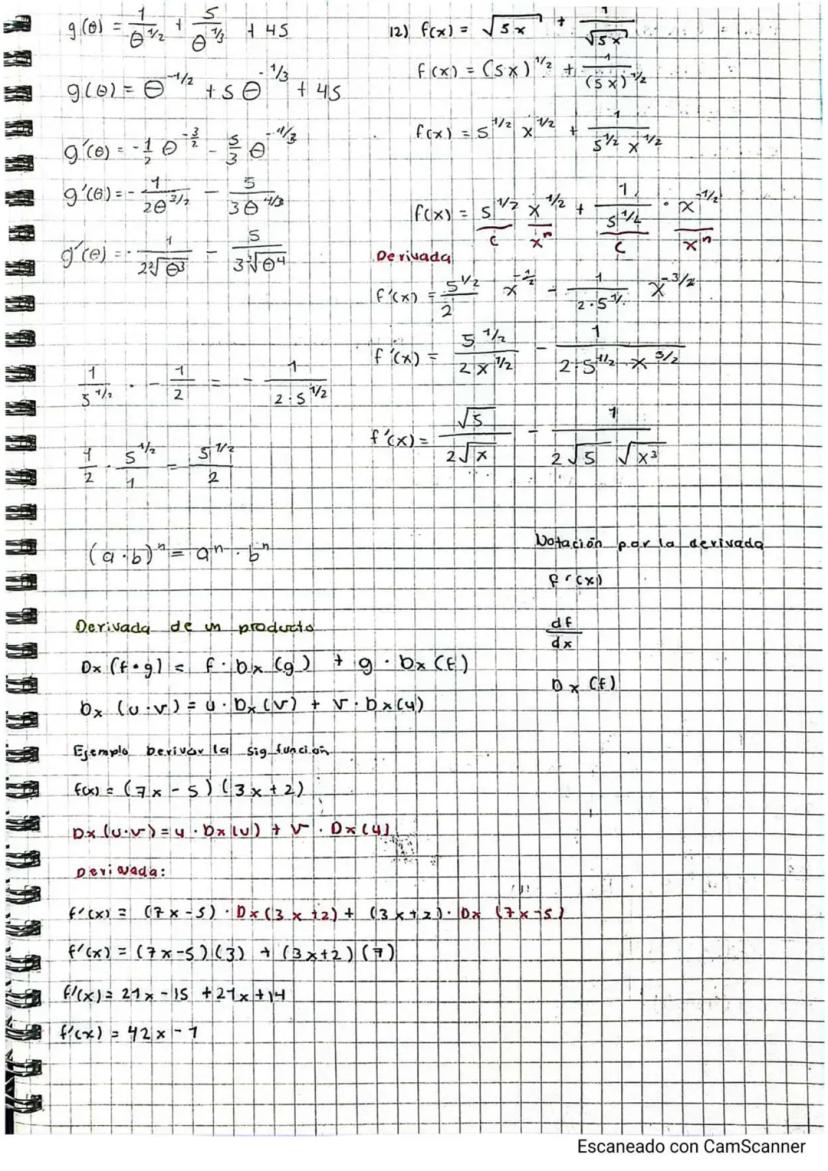 g(θ) = 1/θ^1/2 + 5/θ^1/3 + 45
g(θ) = θ^-1/2 + 5θ^-1/3 + 45
g'(θ) = -1/2 θ^-3/2 - 5/3 θ^-4/3
g'(θ) = - 1/2θ^3/2 - 5/3θ^4/3
g'(θ) = - 1/2²√θ³ - 5/3³√θ⁴
1/5^1/2 · - 1/2 = - 1/2·5^1/2
1/2 · 5^1/2/1 = 5^1/2/2
(a·b)^n = a^n · b^n
12) f(x) = √5x + 1/√5x
f(x) = (5x)^1/2 + 1/(5x)^1/2
f(x) = 5^1/2 x^1/2 + 1/5^1/2 x^1/2
f(x) = 5^1/2 x^1/2 + 1/5^1/2 · x^-1/2
c x^n c x^n
Derivada
f'(x) = 5^1/2/2 x^-1/2 - 1/2·5^1/2 x^-3/2
f'(x) = 5^1/2/2x^1/2 - 1/2·5^1/2·x^3/2
f'(x) = √5/2√x - 1/2√5 √x³
Notación por la derivada
f'(x)
df/dx
Dx (f)
Derivada de un producto
Dx (f·g) = f·Dx (g) + g·Dx (f)
Dx (u·v) = u·Dx(v) + v·Dx(u)
Ejemplo Derivar la sig función
f(x) = (7x - 5) (3x + 2)
Dx (u·v) = u·Dx(v) + v·Dx(u)
Derivada:
f'(x) = (7x - 5) · Dx (3x + 2) + (3x + 2) · Dx (7x - 5)
f'(x) = (7x - 5) (3) + (3x + 2) (7)
f'(x) = 21x - 15 + 21x + 14
f'(x) = 42x - 1
Escaneado con CamScanner